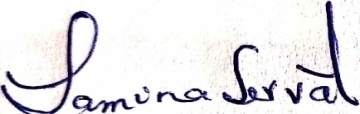 Samina Servat